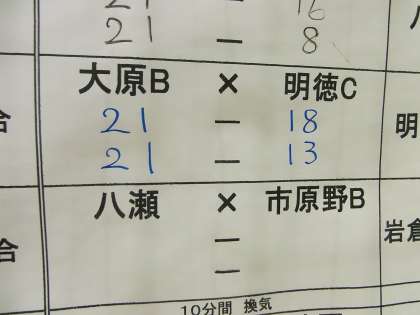 21 — 16
21 — 8
大原B × 明徳C
21 — 18
21 — 13
合
明
八瀬 × 市原野B
—
—
合
岩倉
10分間 換気